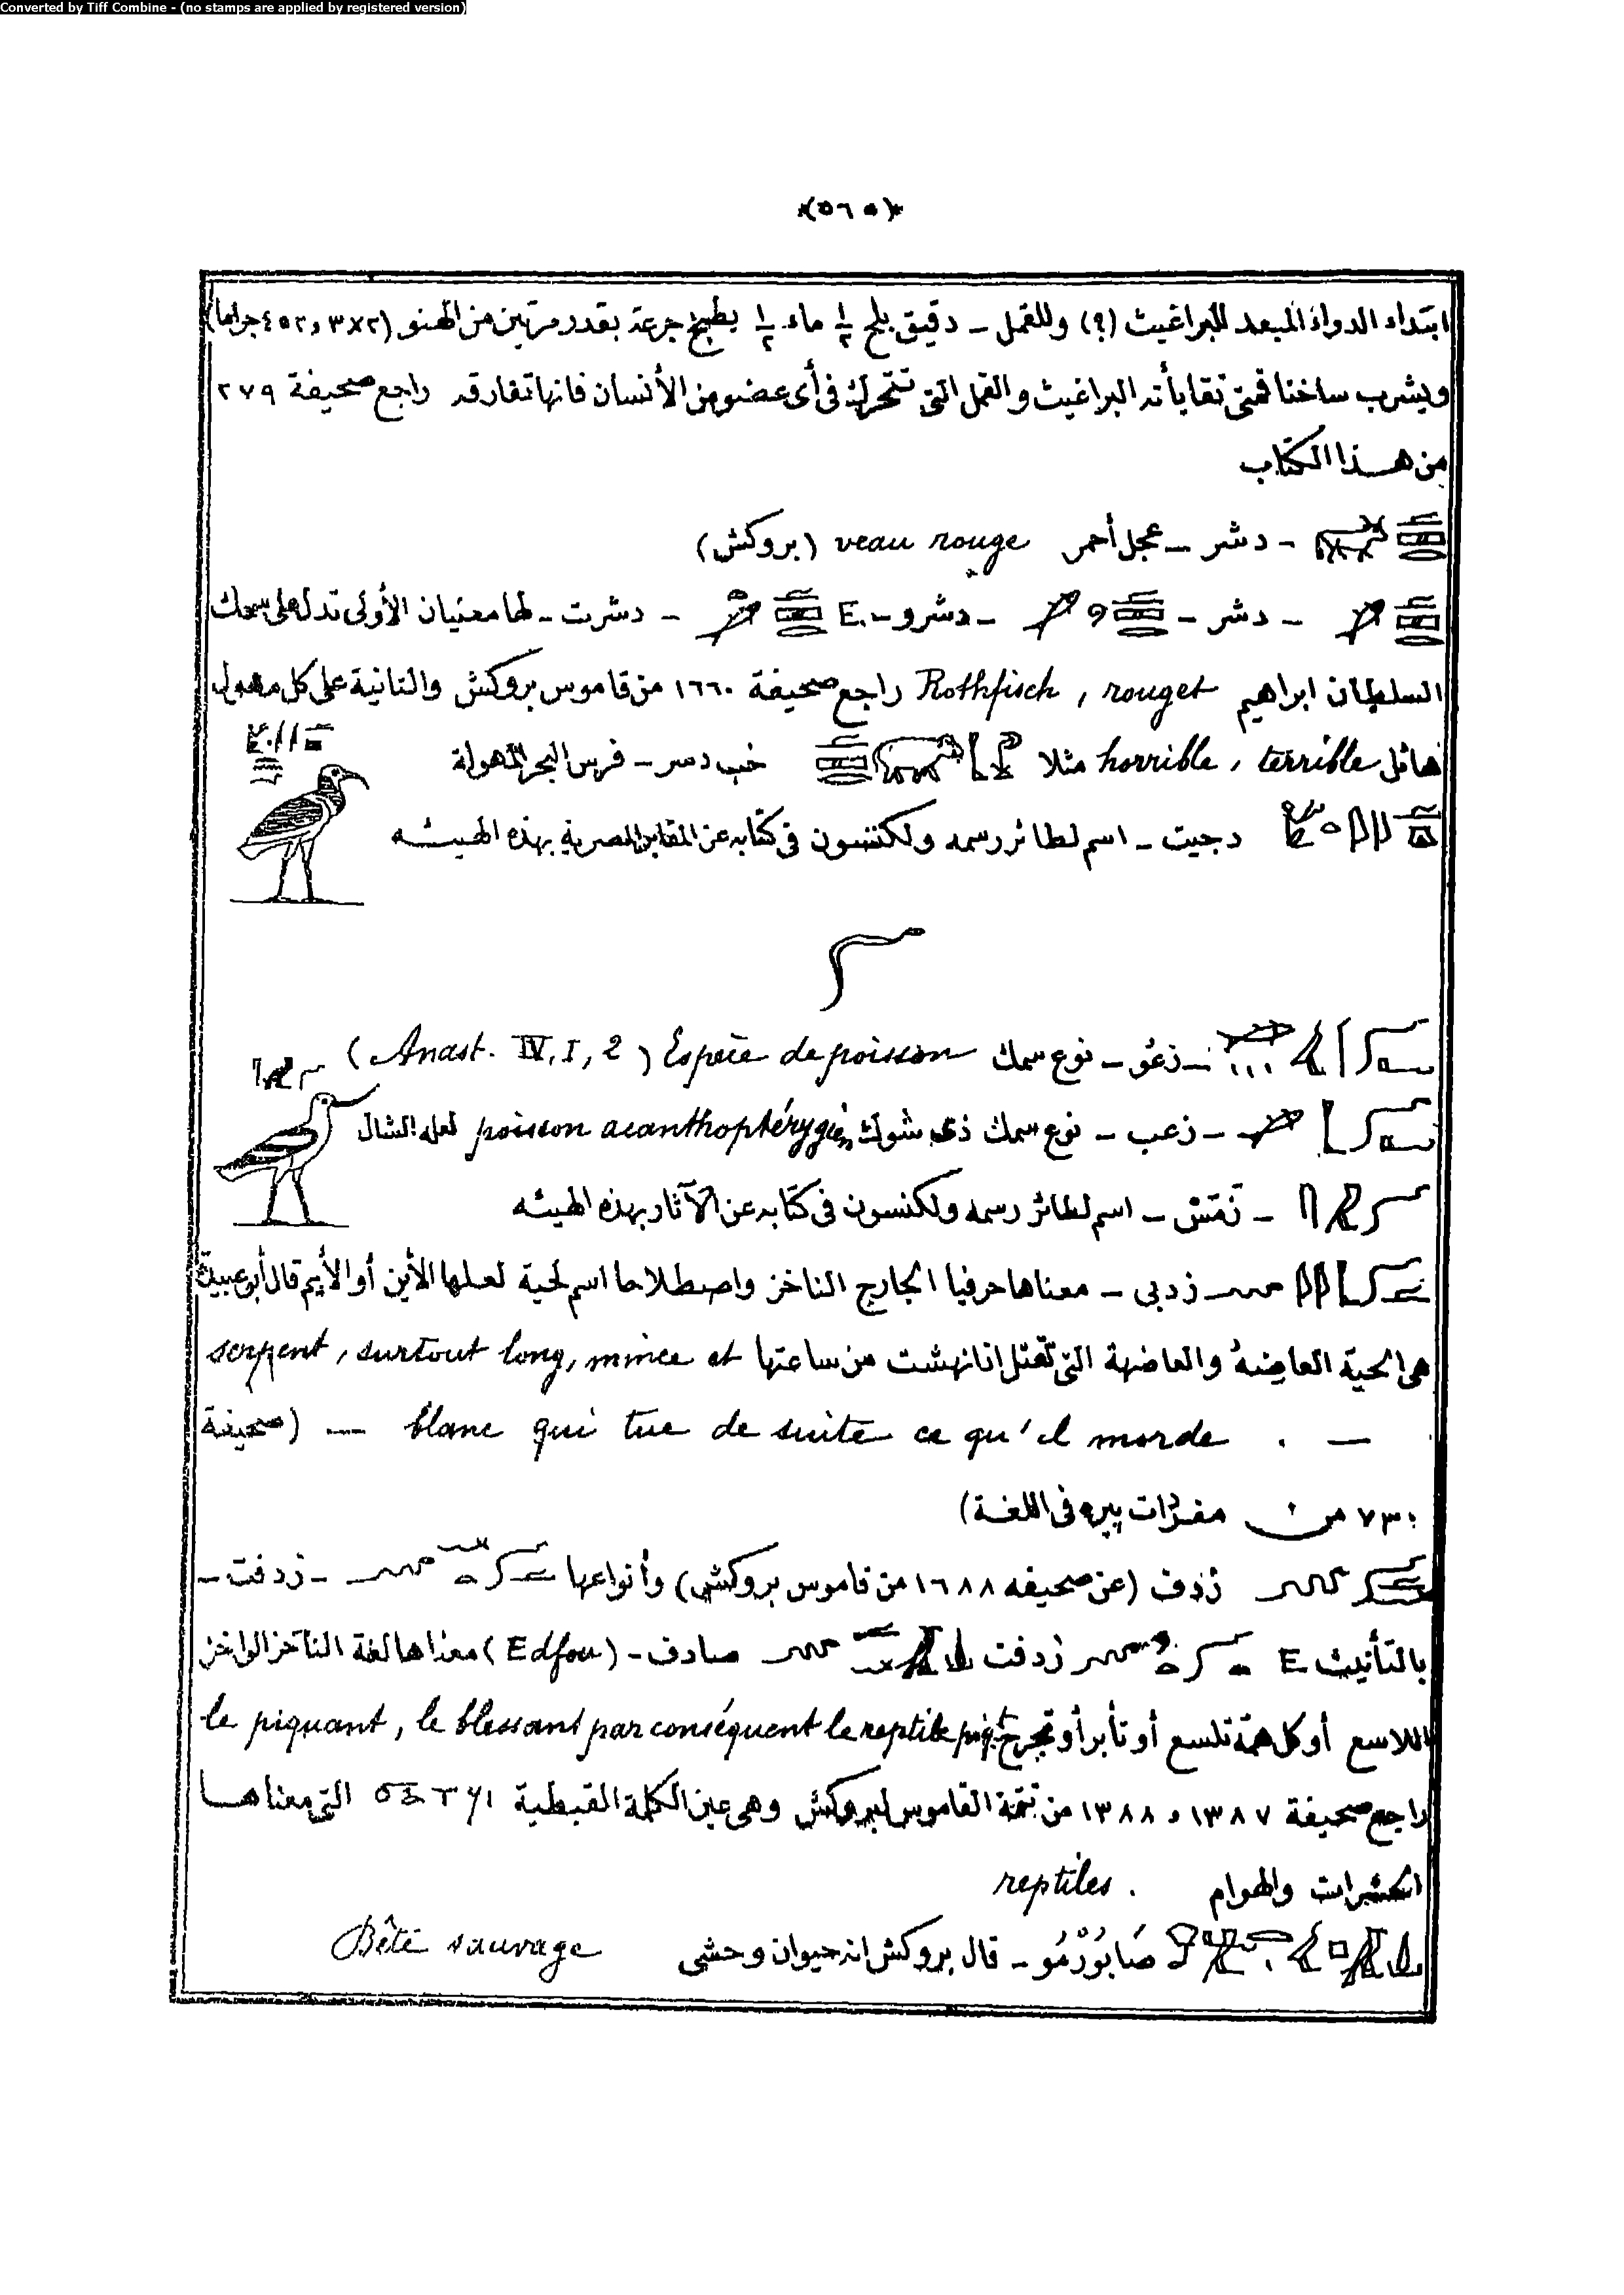 Converted by Tiff Combine - (no stamps are applied by registered version)
(٥٦٥)
ابتداء الدواء المبعد للبراغيث (؟) وللقمل – دقيق بلح ١/٢ ماء ١/٢ يطبخ جرعة بقدر مرتين من الهنو (٢×٤٥٢,٣ جراما)
ويشرب ساخنا فمتى تقايأته البراغيث والقمل التى تتحرك فى أى عضو من الأنسان فانها تفارقه راجع صحيفة ٢٧٩
من هذا الكتاب
– دشر – عجل أحمر veau rouge (بروكش)
– دشر – – دشرو – E. – دشرت – لها معنيان الأولى تدل على سمك
السلطان ابراهيم Rothfisch, rouget راجع صحيفة ١٦٦٠ من قاموس بروكش والثانية على كل مهول
هائل horrible, terrible مثلا خب دسر – فرس البحر المهولة
دجيت – اسم لطائر رسمه ولكنسون فى كتابه عن المقابر المصرية بهذه الهيئه
– زعو – نوع سمك Espèce de poisson (Anast. IV, I, 2)
– زعب – نوع سمك ذى شوك poisson acanthoptérygien لعله الشال
– نمش – اسم لطائر رسمه ولكنسون فى كتابه عن الآثار بهذه الهيئه
زدبى – معناها حرفيا الجارح الناخز واصطلاحا اسم لحية لعلها الأين أو الأيم قال أبو عبيدة
هى الحية العاضه والعاضهة التى تقتل اذا نهشت من ساعتها serpent, surtout long, mince et
blanc qui tue de suite ce qu'il morde . — (صحيفة
٧٣٠ من مفردات بيره فى اللغة)
زدف (عن صحيفه ١٦٨٨ من قاموس بروكش) وأنواعها – زدفت –
بالتأنيث E زدفت صادف – (Edfou) معناها لغة الناخز الواخز
اللاسع أو كل هامة تلسع أو تأبر أو تجرح le piquant, le blessant par conséquent le reptile
راجع صحيفة ١٣٨٧ و ١٣٨٨ من تتمة القاموس لبروكش وهى عين الكلمة القبطية التى معناها
الحشرات والهوام reptiles.
صَابُورْمُو – قال بروكش انه حيوان وحشى Bête sauvage